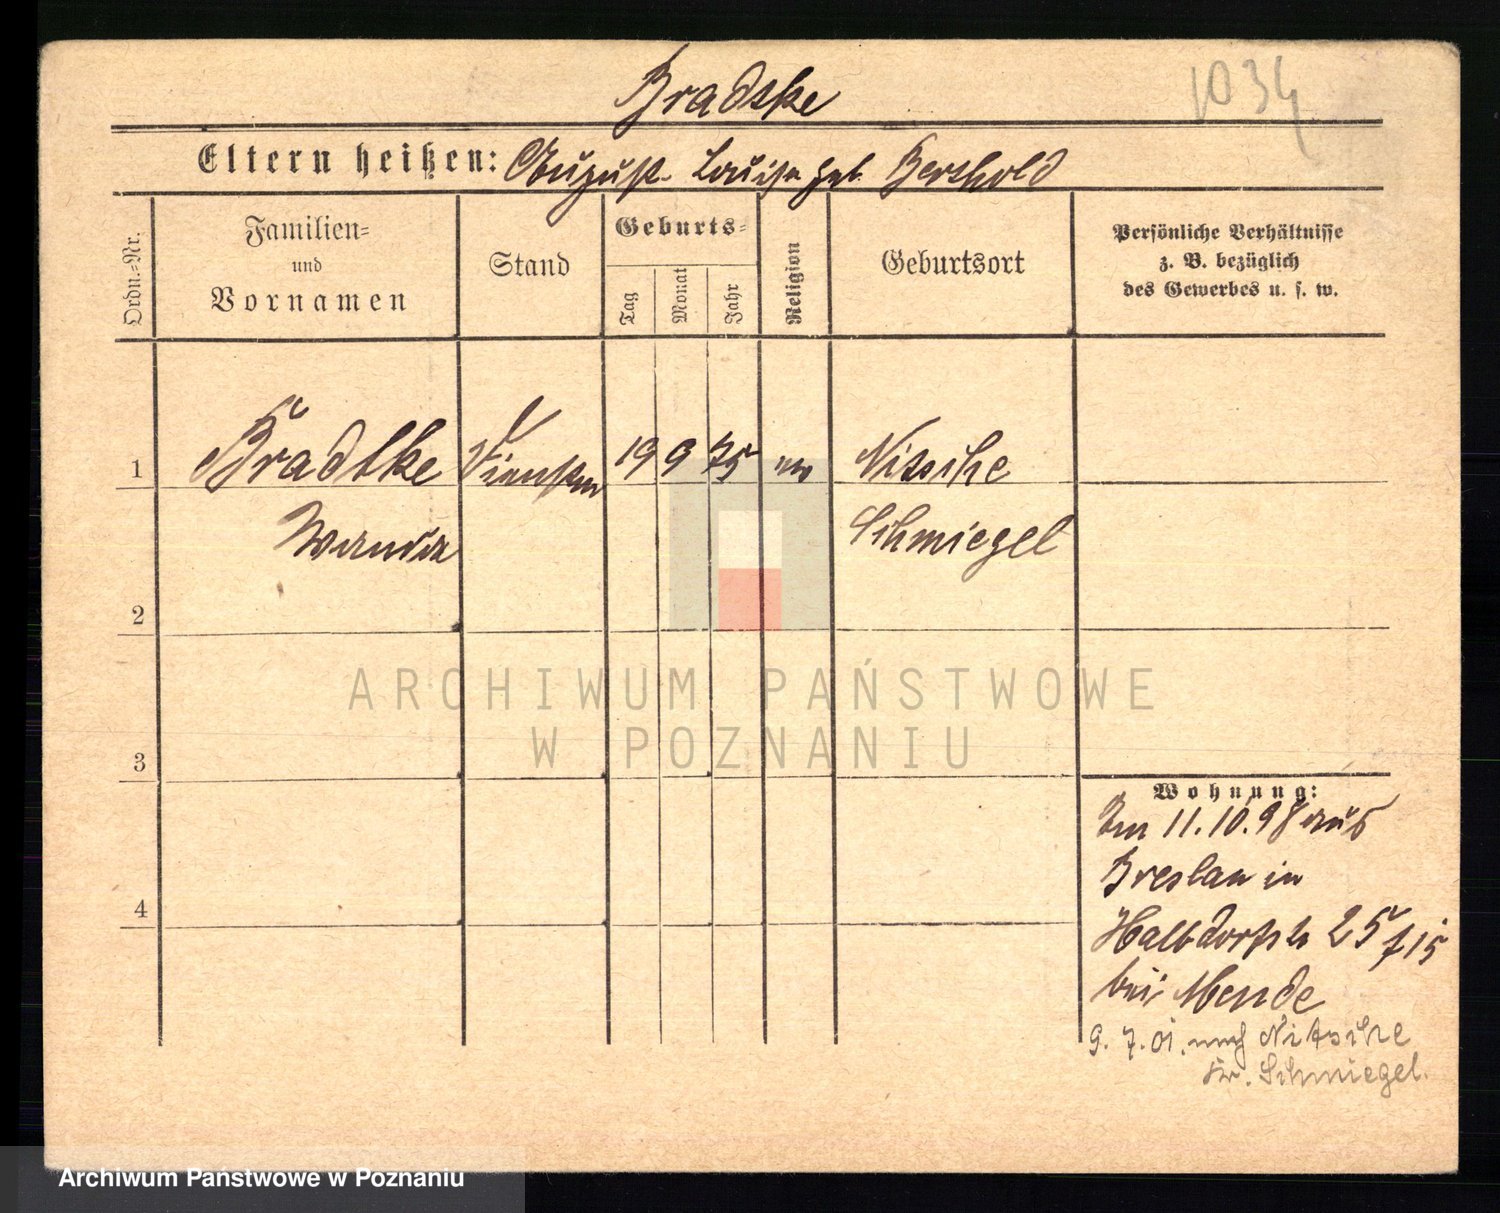 Bradtke
1034
Eltern heißen: August Louise geb. Berthold
Ordn.-Nr.
Familien-
und
Vornamen
Stand
Geburts-
Tag
Monat
Jahr
Religion
Geburtsort
Persönliche Verhältnisse
z. B. bezüglich
des Gewerbes u. s. w.
1
Bradtke
19 9 75 ev
Nitsche
Wanda
Schmiegel
2
ARCHIWUM PAŃSTWOWE
W POZNANIU
3
Wohnung:
Am 11.10.98 aus
Breslau in
Halbdorfstr 25
bei Mende
9. 7. 01. nach Nitzsche
Kr. Schmiegel.
4
Archiwum Państwowe w Poznaniu